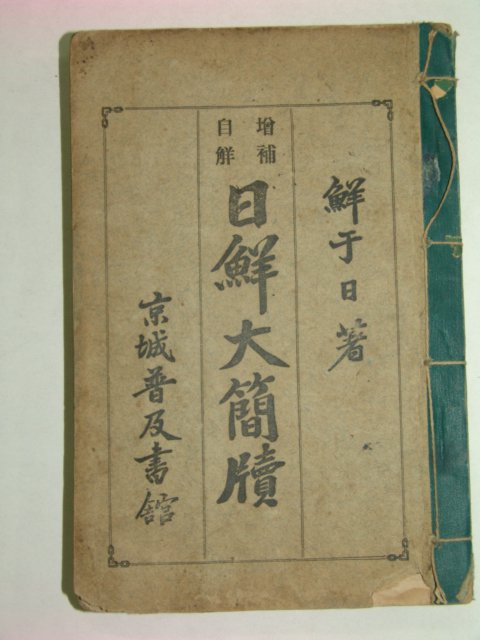 鮮于日著
增補
自解
日鮮大簡牘
京城普及書館